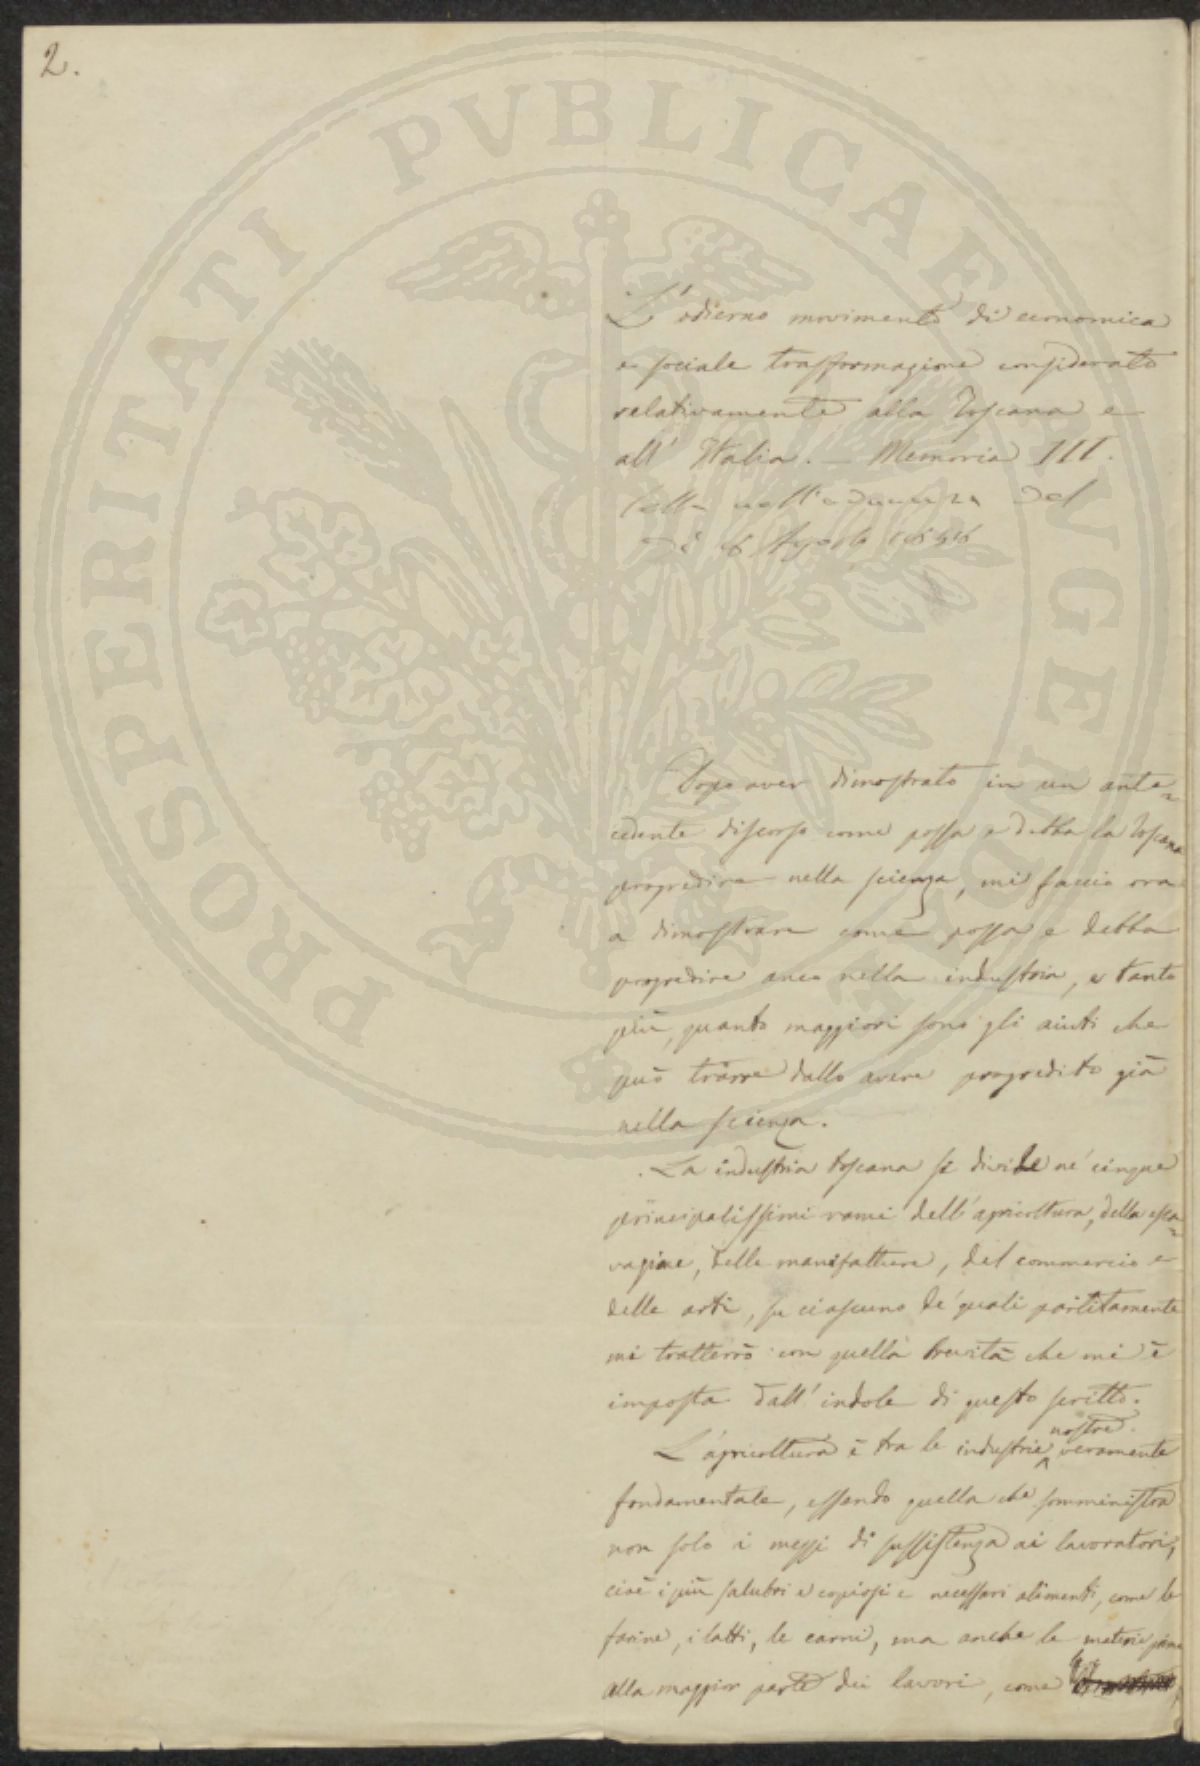 2.
PROSPERITATI PVBLICAE AVGENDAE
L'odierno movimento di economica
e sociale trasformazione considerato
relativamente alla Toscana e
all' Italia. — Memoria III.
Letta nell'adunanza del
dì 6 Agosto
Dopo aver dimostrato in un ante=
cedente discorso come possa e debba la Toscana
progredire nella scienza, mi faccio ora
a dimostrare come possa e debba
progredire anco nella industria, e tanto
più, quanto maggiori sono gli aiuti che
può trarre dallo avere progredito già
nella scienza.
La industria toscana si divide ne' cinque
principalissimi rami dell'agricoltura, della esca=
vazione, delle manifatture, del commercio e
delle arti, su ciascuno de' quali partitamente
mi tratterrò con quella brevità che mi è
imposta dall' indole di questo scritto.
L'agricoltura è tra le industrie nostre veramente
fondamentale, essendo quella che somministra
non solo i mezzi di sussistenza ai lavoratori,
cioè i più salubri e copiosi e necessari alimenti, come le
farine, i latti, le carni, ma anche le materie prime
alla maggior parte dei lavori, come